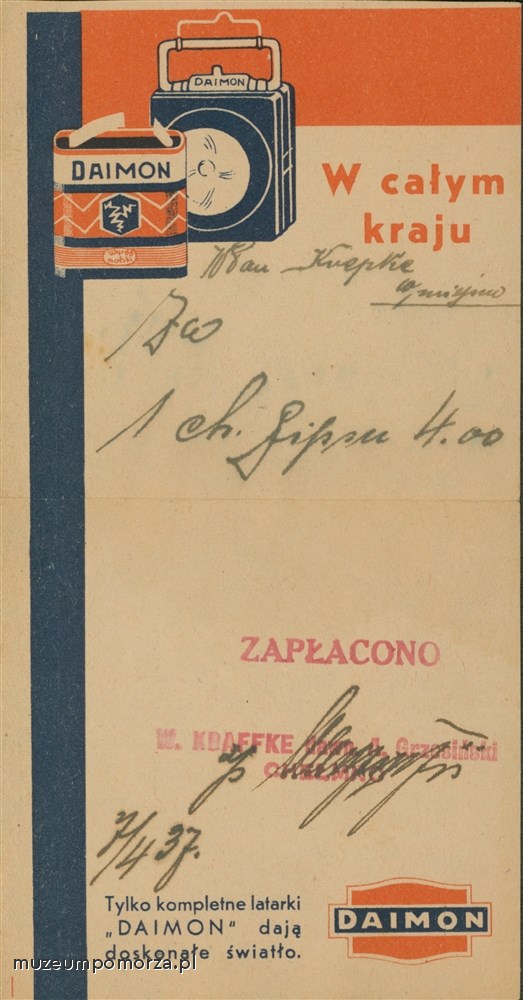 DAIMON
DAIMON
W całym
kraju
WPan Knepke
w miejscu
1 ch. Gipsu 4.00
ZAPŁACONO
W. KRAFFKE dawn. A. Grzesiński
CHEŁMNO
7/4 37.
Tylko kompletne latarki
„DAIMON" dają
doskonałe światło.
DAIMON
muzeumpomorza.pl